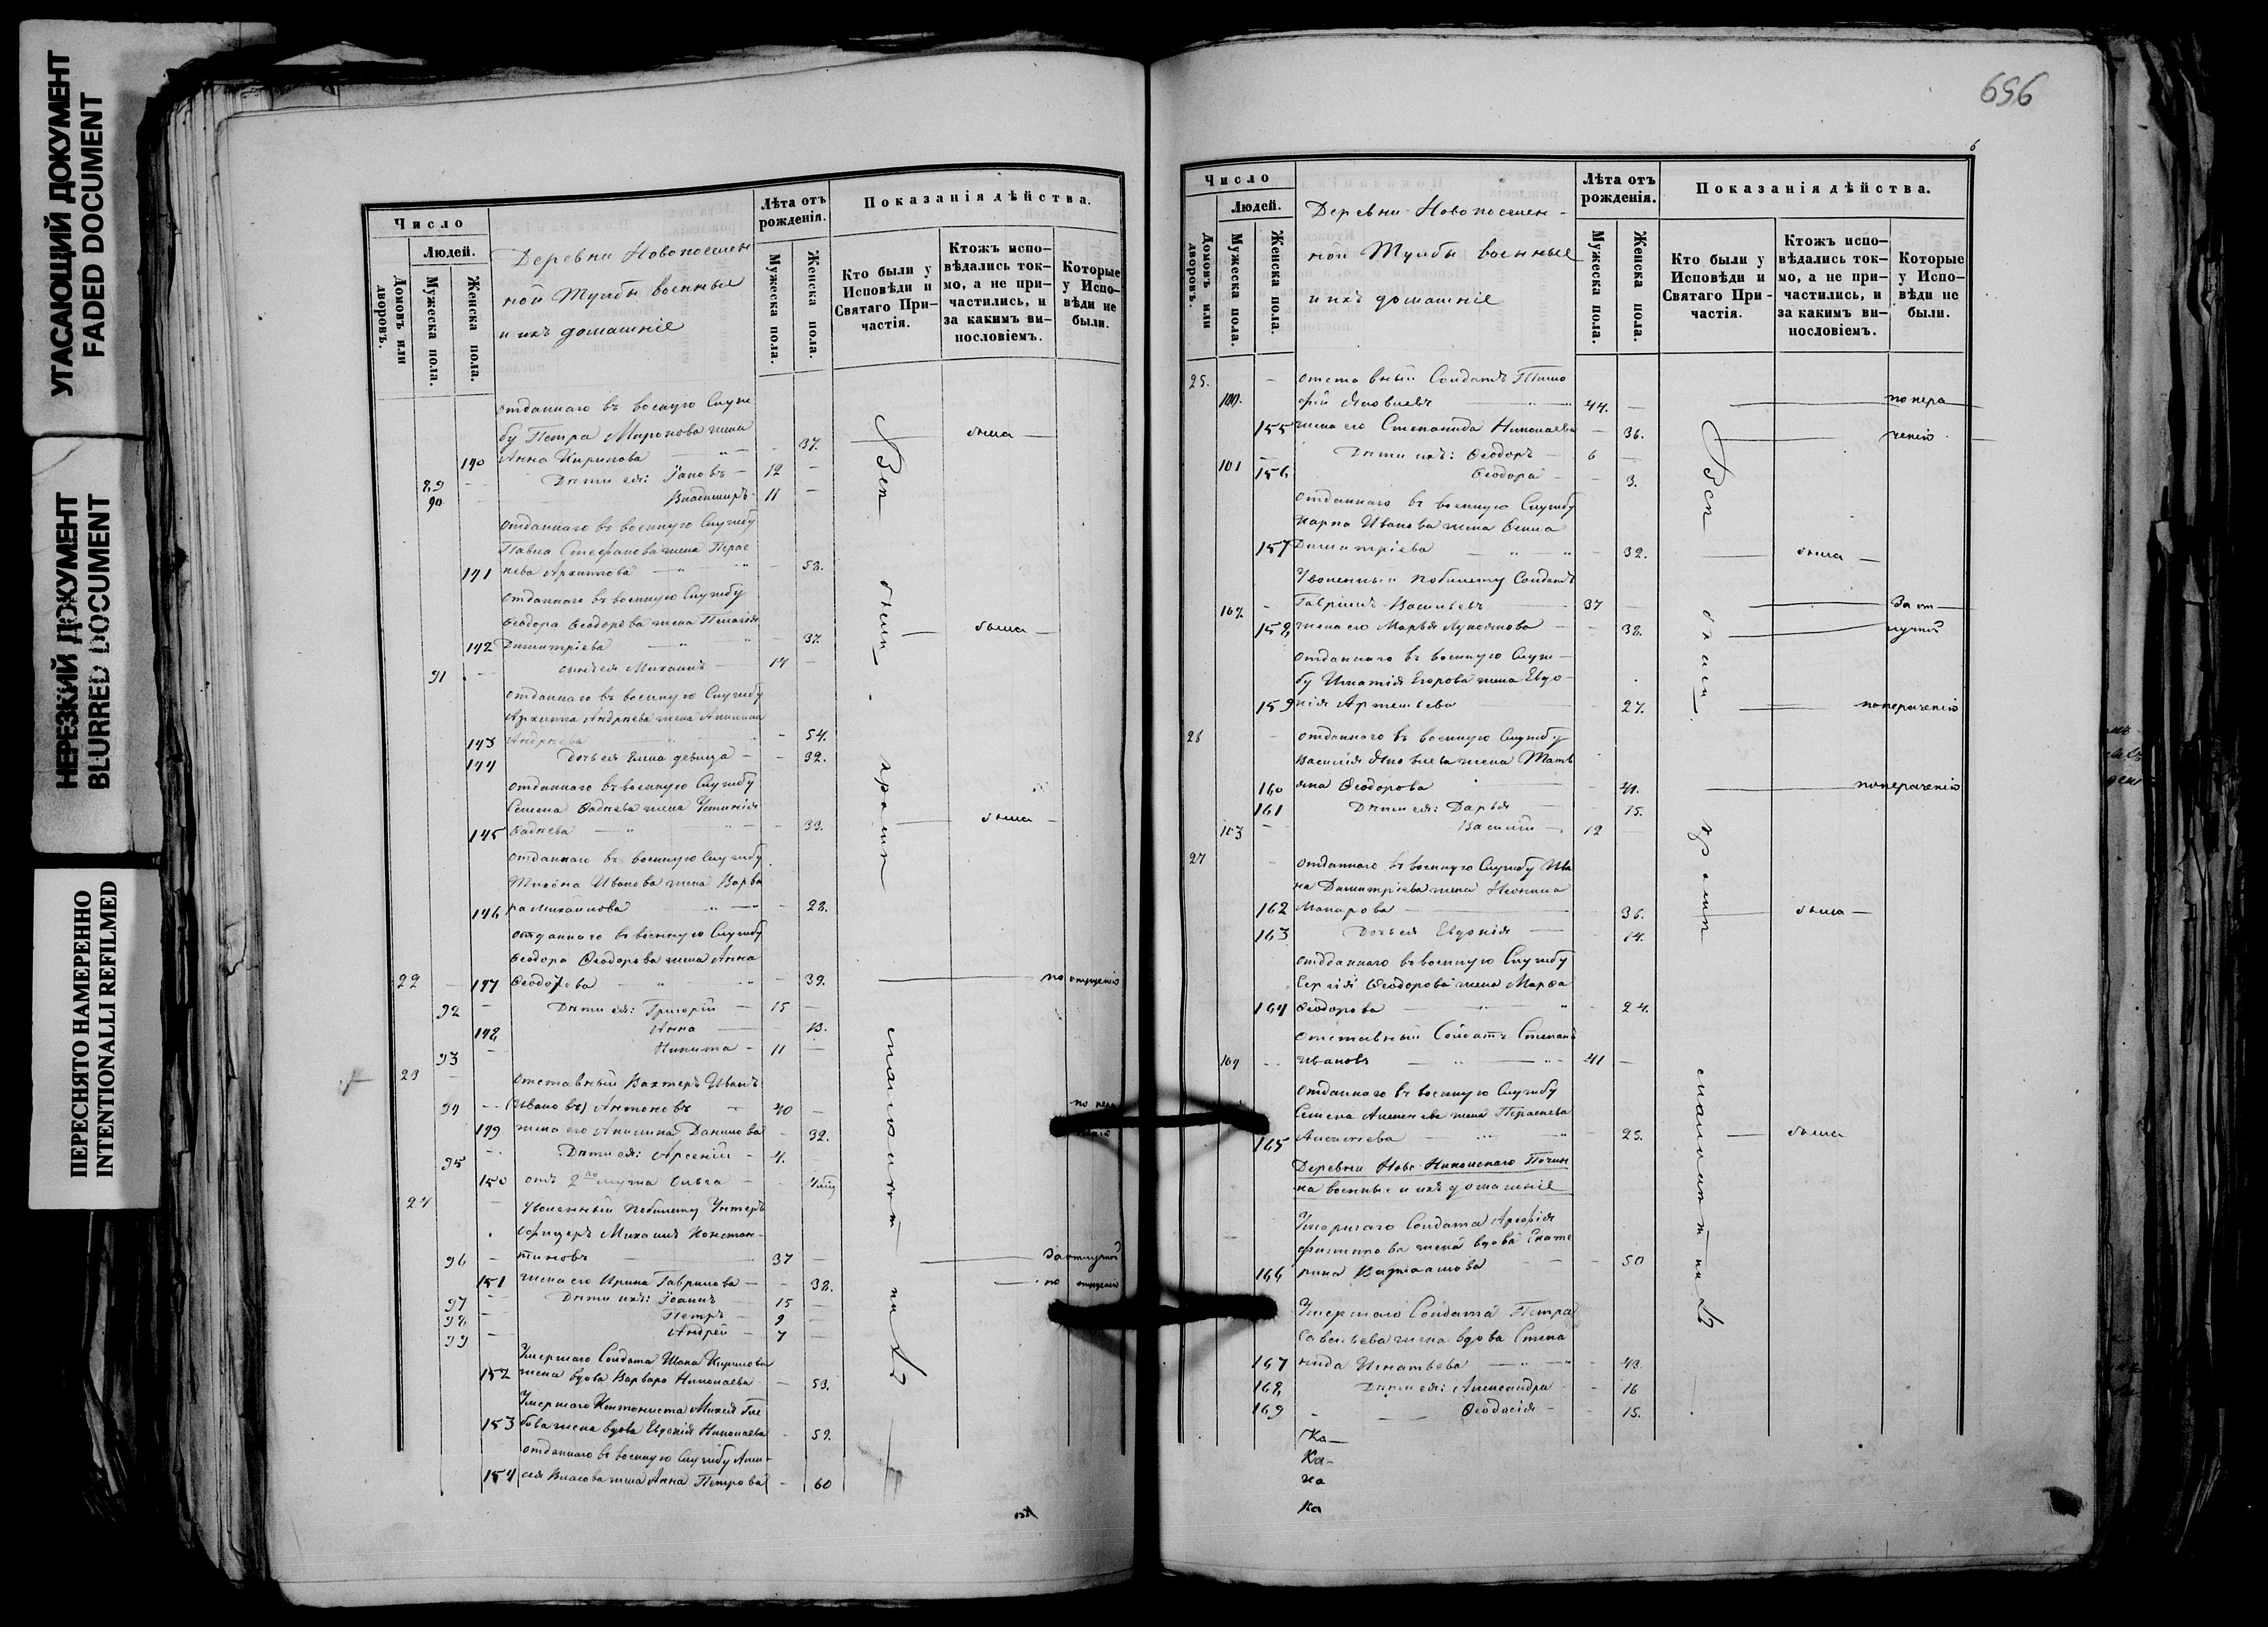 УГАСАЮЩИЙ ДОКУМЕНТ
FADED DOCUMENT
НЕРЕЗКИЙ ДОКУМЕНТ
BLURRED DOCUMENT
ПЕРЕСНЯТО НАМЕРЕННО
INTENTIONALLI REFILMED
Число
Людей.
Домовъ или дворовъ.
Мужеска пола.
Женска пола.
Деревни Новопоселен
ной Тумбы военные
и ихъ домашніе
Лѣта отъ рожденія.
Мужеска пола.
Женска пола.
Показанія дѣйства.
Кто были у Исповѣди и Святаго Причастія.
Ктожъ исповѣдались токмо, а не причастились, и за какимъ винословіемъ.
Которые у Исповѣди не были.
отданнаго въ военую Служ
бу Петра Миронова жена
140 Анна Кирилова 37. была
89 Дѣти ея: Іаковъ 12
90 Владимиръ 11
отданнаго въ военную Службу
Павла Стефанова жена Парас
141 кева Архипова 53.
отданнаго въ военную Службу
Ѳеодора Ѳеодорова жена Пелагія
142 Димитріева 37. была
91 сынъ ея Михаилъ 14
отданнаго въ военную Службу
Архипа Андреева жена Акилина
143 Андреева 54.
144 дочь ея Елена девица 32.
отданнаго въ военную Службу
Семена Фадѣева жена Устинія
145 Фадѣева 33. была
отданнаго въ военную Службу
Тихона Иванова жена Варва
146 ра Михайлова 28.
отданнаго въ военную Службу
Ѳеодора Ѳеодорова жена Анна
22 147 Ѳеодорова 39. по опущенію
92 Дѣти ея: Григорій 15
148 Анна 13.
93 Никита 11
23 Отставный Вахтеръ Иванъ
94 (Ивановъ) Антоновъ 40 по нера
149 жена его Акилина Данилова 32.
95 Дѣти ея: Арсеній 4.
150 отъ 2го мужа Ольга
24 Уволенный по билету Унтеръ
офицеръ Михаилъ Констан-
96 тиновъ 37 За отлучкой
151 жена его Ирина Гаврилова 38. по опущенію
97 Дѣти ихъ: Іоаннъ 15
98 Петръ 9
99 Андрей 7
Умершаго Солдата Ивана Кирилова
152 жена вдова Варвара Николаева 53.
Умершаго Кантониста Михея Гле
153 бова жена вдова Евдокія Николаева 59.
отданнаго въ военную Службу Алек
154 сея Власова жена Анна Петрова 60
Всѣ были кромѣ
656
6
Число
Людей.
Домовъ или дворовъ.
Мужеска пола.
Женска пола.
Деревни Новопоселен-
ной Тумбы военные
и ихъ домашніе
Лѣта отъ рожденія.
Мужеска пола.
Женска пола.
Показанія дѣйства.
Кто были у Исповѣди и Святаго Причастія.
Ктожъ исповѣдались токмо, а не причастились, и за какимъ винословіемъ.
Которые у Исповѣди не были.
25. отставный Солдатъ Тимо
100. фей Яковлевъ 44. по нера
155 жена его Степанида Николаева 36. ченію
101 Дѣти ихъ: Ѳеодоръ 6
156 Ѳеодора 3.
отданнаго въ военную Службу
Карпа Иванова жена Елена
157 Димитріева 32. была
Уволенный по билету Солдатъ
102 Гавріилъ Васильевъ 37 За от
158 жена его Марья Лукоянова 38. лучкой
отданнаго въ военную Служ-
бу Игнатія Егорова жена Евдо-
159 кія Артемьева 27. по нераченію
26 отданнаго въ военную Службу
Василія Яковлева жена Татъ
160 яна Ѳеодорова 41. по нераченію
161 Дѣти ея: Дарья 15.
103 Василій 12
27 отданнаго въ военную Службу Ива
на Димитріева жена Неонила
162 Макарова 36. была
163 Дочь ея Евдокія 14.
отдданнаго въ военную Службу
Сергія Ѳеодорова жена Марѳа
164 Ѳеодорова 24.
отставный Солдатъ Степанъ
104 Ивановъ 41
отданнаго въ военную Службу
Семена Алексѣева жена Парасѣева
165 Алексѣева 25. была
Деревни Ново-Никольскаго Почин
ка военные и ихъ домашніе
Умершаго Солдата
Филиппова жена вдова Екате
166 рина Варлаамова 50
Умершаго Солдата Петра
Савельева жена вдова Степа
167 нида Игнатьева 43.
168 Дѣти ея: Александра 16
169 Ѳеодосія 15.
Всѣ были кромѣ
Ка
Ка-
ка
Ка